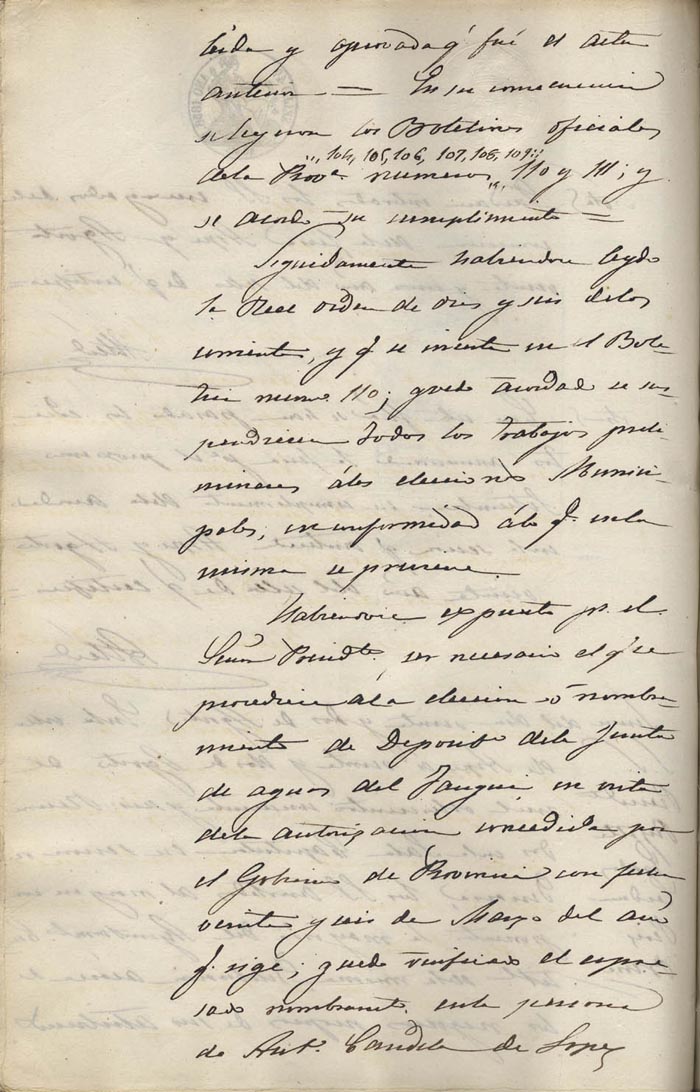 leida y aprovada q.e fué el acta
anterior = En su consecuencia
se leyeron los Boletines oficiales
104, 105, 106, 107, 108, 109
de la Prov.a numeros 110 y 111; y
se acordó su cumplimiento =
Seguidamente habiendose leydo
la Real orden de diez y seis de los
corrientes, y q.e se inserta en el Bole-
tin num.o 110; quedó acordado se sus-
pendiesen todos los trabajos preli-
minares á las elecciones Munici-
pales, en conformidad á lo q.e en la
misma se previene.
Habiendose expuesto p.r el
Señor Presid.te ser necesario el q.e se
procediese á la eleccion ó nombra-
miento de Deposit.o de la Junta
de aguas del en vista
de la autorizacion concedida por
el Gobierno de Provincia con fecha
veinte y seis de Marzo del año
q.e rige; quedó verificado el espre-
sado nombram.to en la persona
de Ant.o Candela de Lopez